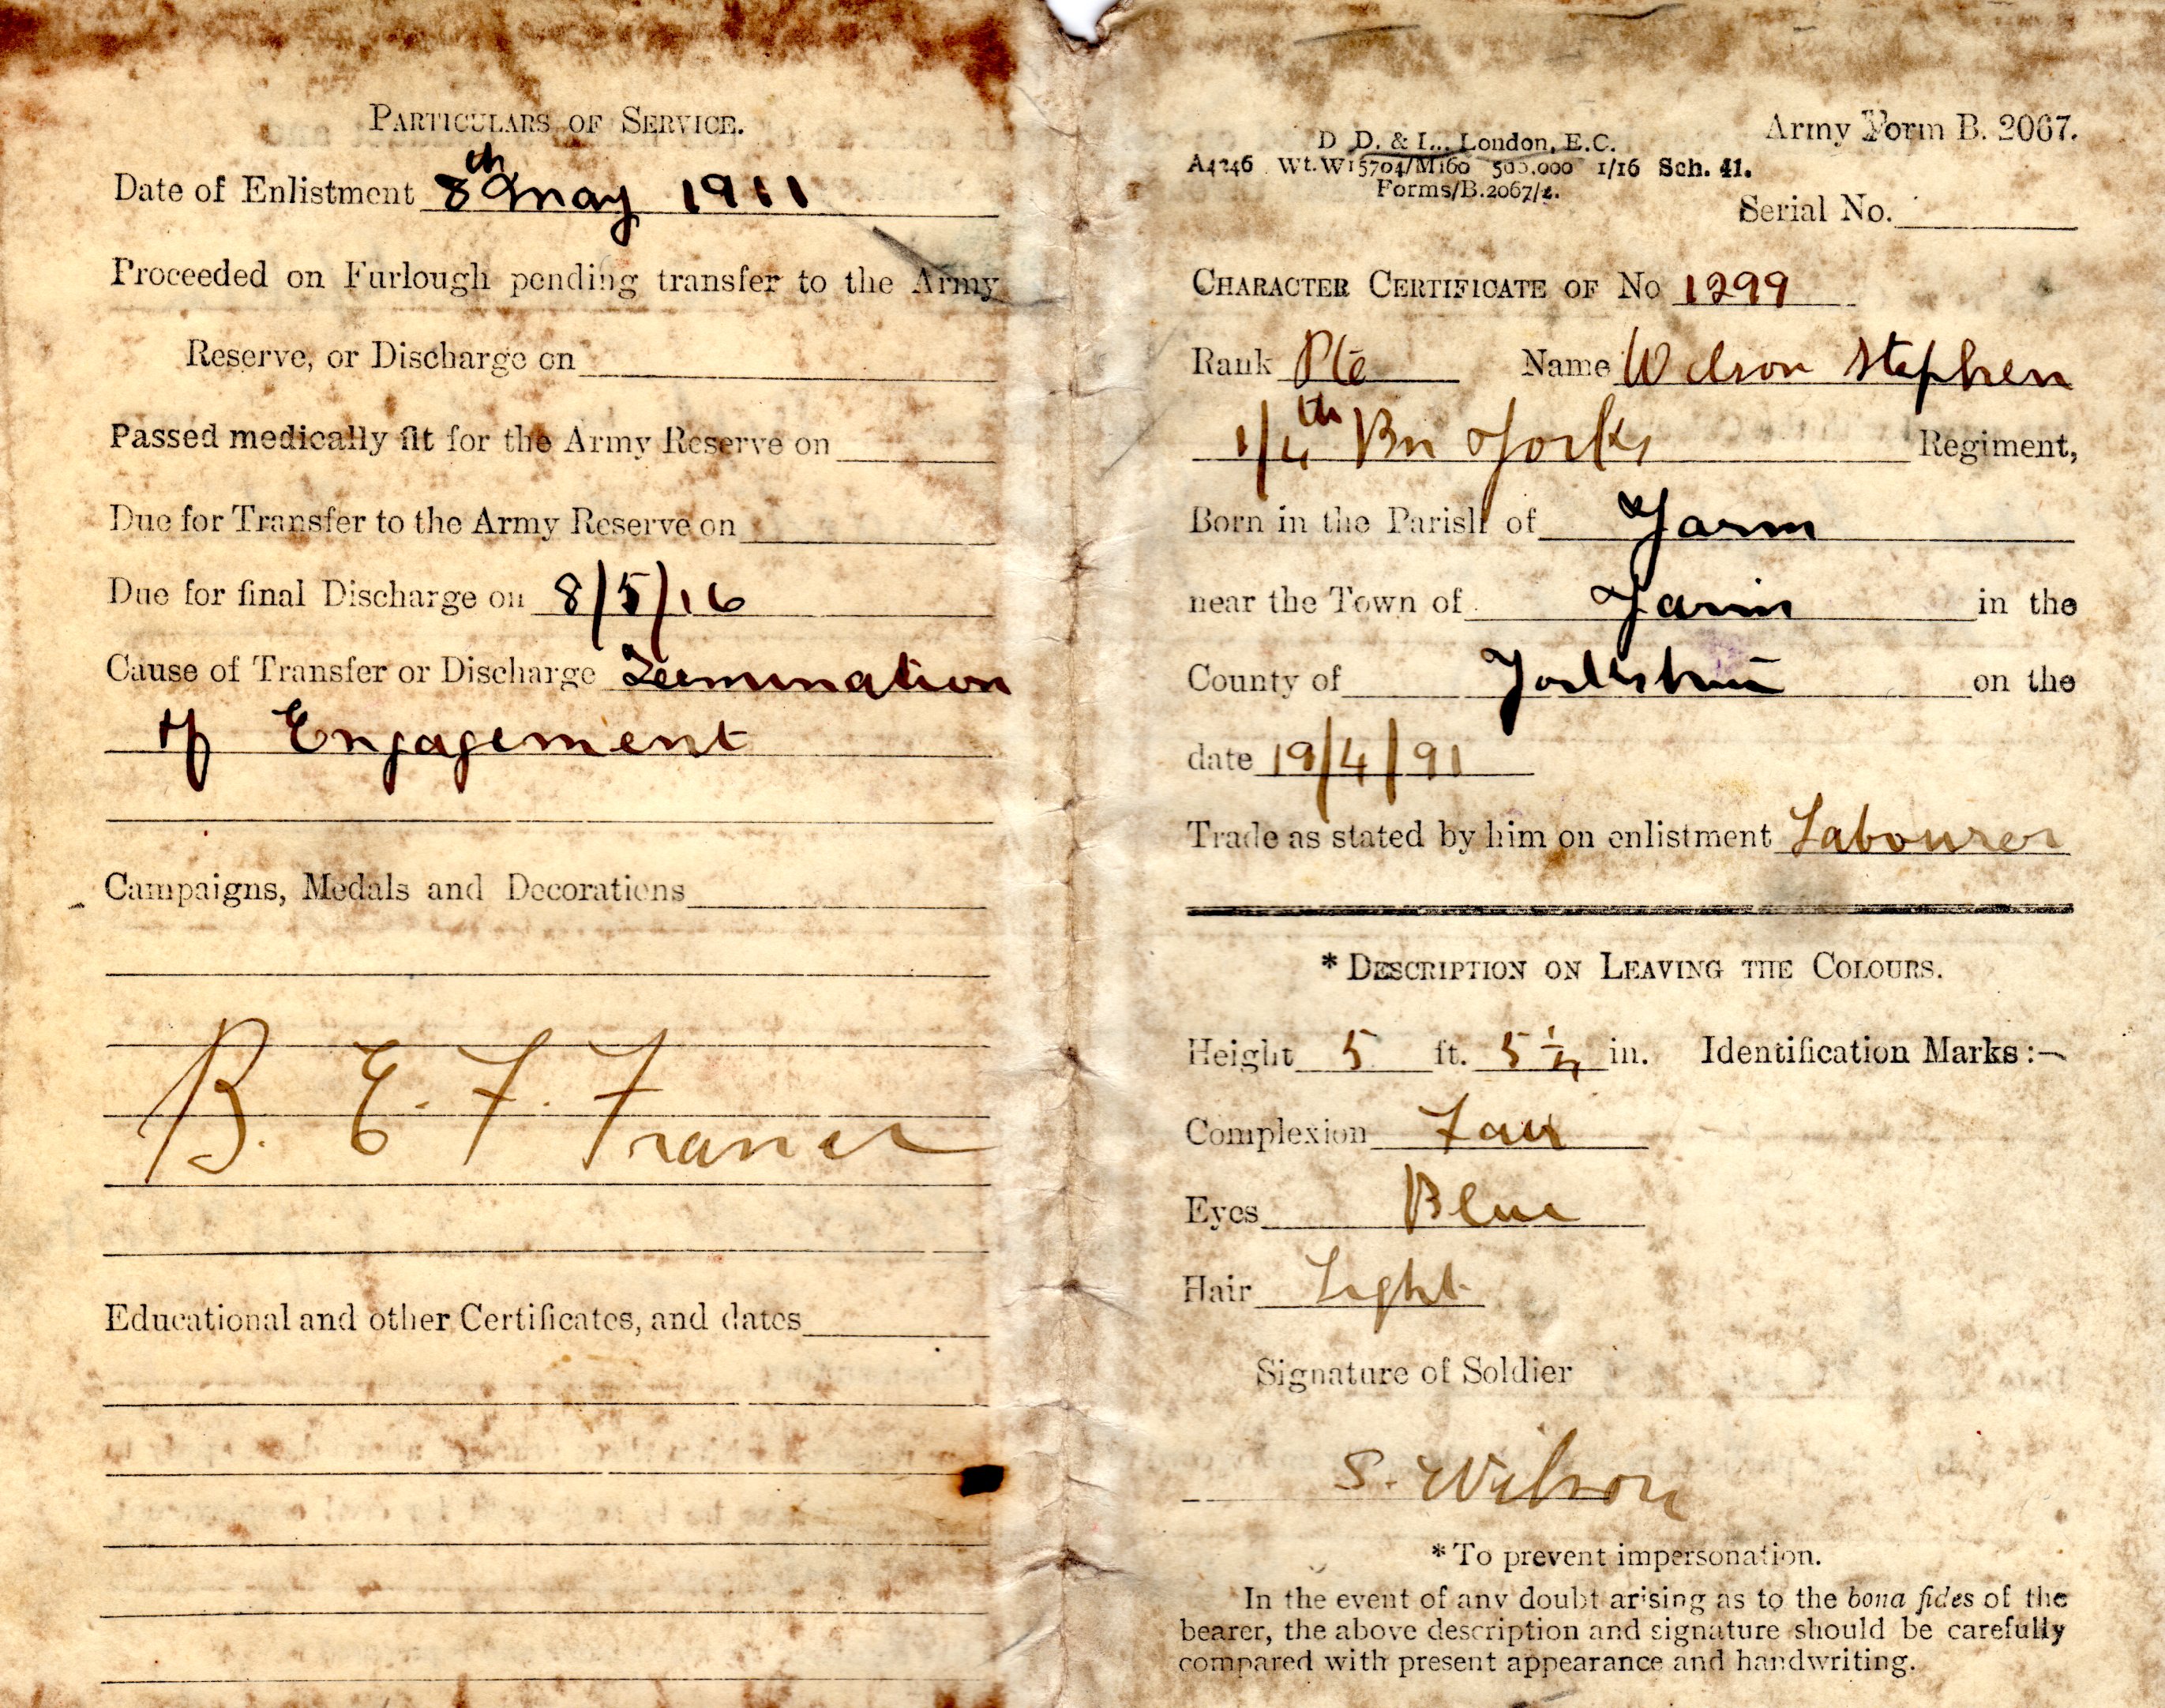 PARTICULARS OF SERVICE.
Date of Enlistment 8th May 1911
Proceeded on Furlough pending transfer to the Army
Reserve, or Discharge on
Passed medically fit for the Army Reserve on
Due for Transfer to the Army Reserve on
Due for final Discharge on 8/5/16
Cause of Transfer or Discharge Termination
of Engagement
Campaigns, Medals and Decorations
B. E. F. France
Educational and other Certificates, and dates
Army Form B. 2067.
D. D. & L., London, E.C.
A4246 Wt.W15704/M160 500,000 1/16 Sch. 41.
Forms/B.2067/2.
Serial No.
CHARACTER CERTIFICATE OF No 1299
Rank Pte Name Wilson Stephen
1/4th Bn Yorks Regiment,
Born in the Parish of Yarm
near the Town of Yarm in the
County of Yorkshire on the
date 19/4/91
Trade as stated by him on enlistment Labourer
* DESCRIPTION ON LEAVING THE COLOURS.
Height 5 ft. 5 1/4 in. Identification Marks :—
Complexion Fair
Eyes Blue
Hair Light
Signature of Soldier
S. Wilson
* To prevent impersonation.
In the event of any doubt arising as to the bona fides of the
bearer, the above description and signature should be carefully
compared with present appearance and handwriting.